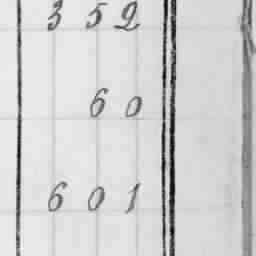 352
60
601